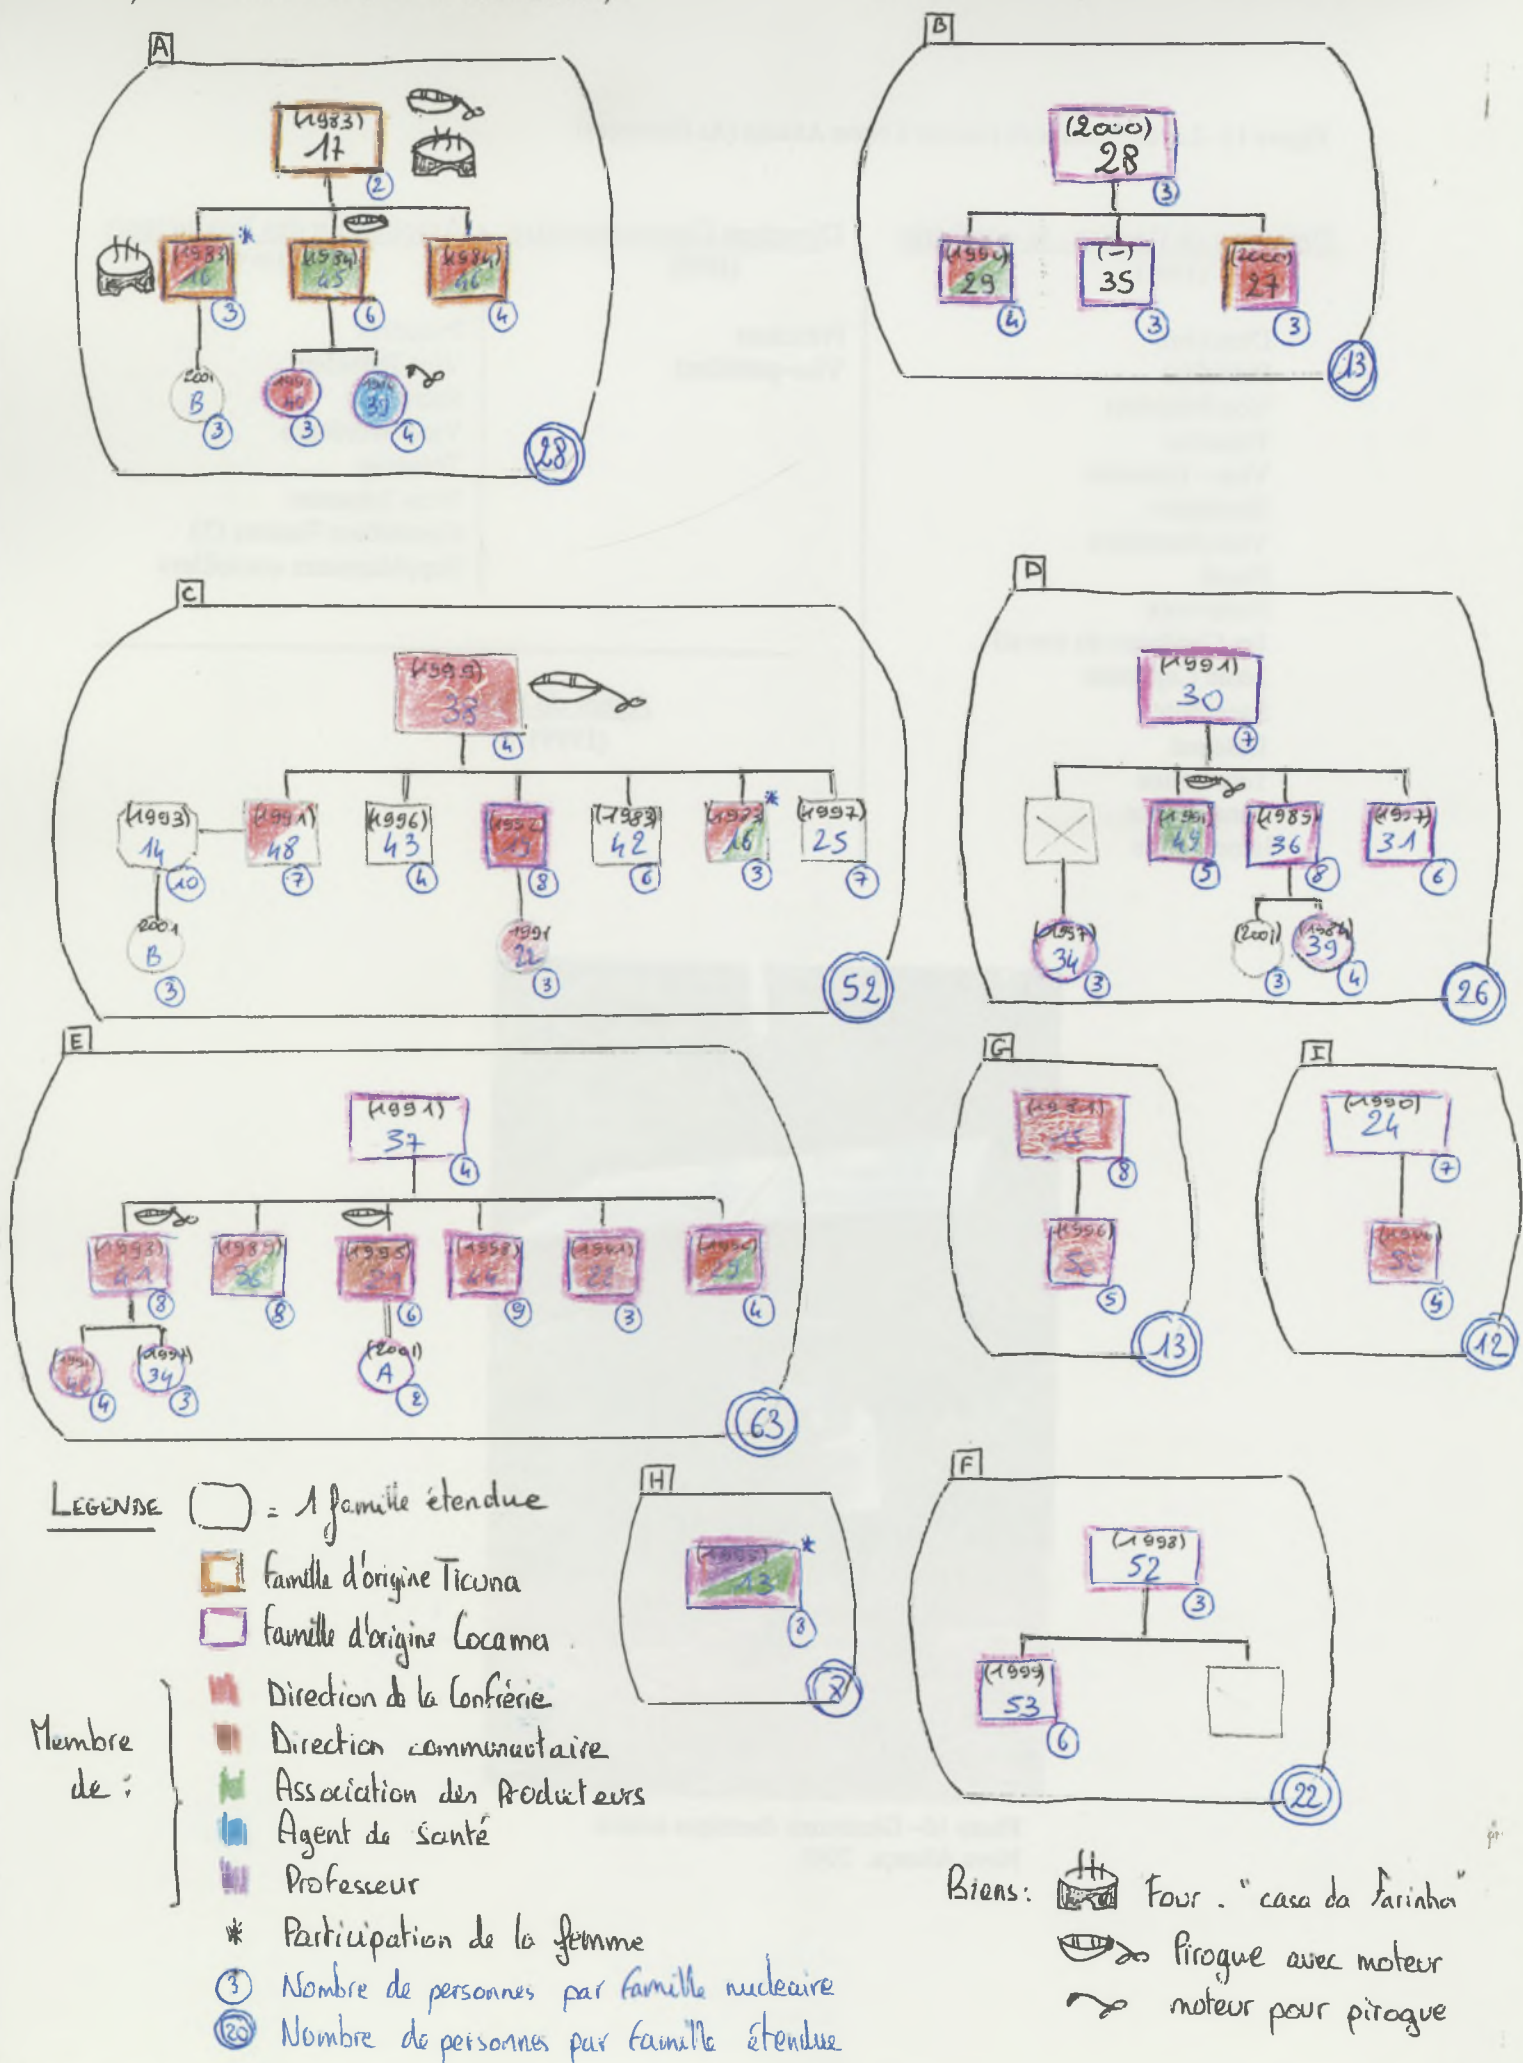 A
(1983)
17
2
(1983)
16
3
(1984)
45
6
(1984)
46
4
2001
B
3
3
39
4
28
B
(2000)
28
3
29
4
(-)
35
3
(2000)
27
3
13
C
(1999)
38
4
(1993)
14
10
(1991)
48
7
(1996)
43
4
8
(1983)
42
6
16
3
(1997)
25
7
2001
B
3
1991
22
3
52
D
(1991)
30
7
(1991)
49
5
(1985)
36
8
(1997)
31
6
(1997)
34
3
(2001)
3
(1984)
39
4
26
E
(1991)
37
4
(1993)
41
8
(1989)
36
8
6
(1998)
44
9
3
4
4
(1997)
34
3
(2001)
A
2
63
G
8
(1996)
5
13
I
(1990)
24
7
5
12
LEGENDE = 1 famille étendue
Famille d'origine Ticuna
Famille d'origine Cocama
Membre de :
Direction de la Confrérie
Direction communautaire
Association des Producteurs
Agent de Santé
Professeur
* Participation de la femme
3 Nombre de personnes par famille nucléaire
20 Nombre de personnes par famille étendue
H
13
8
F
(1998)
52
3
(1999)
53
6
22
Biens: Four . "casa da farinha"
Pirogue avec moteur
moteur pour pirogue